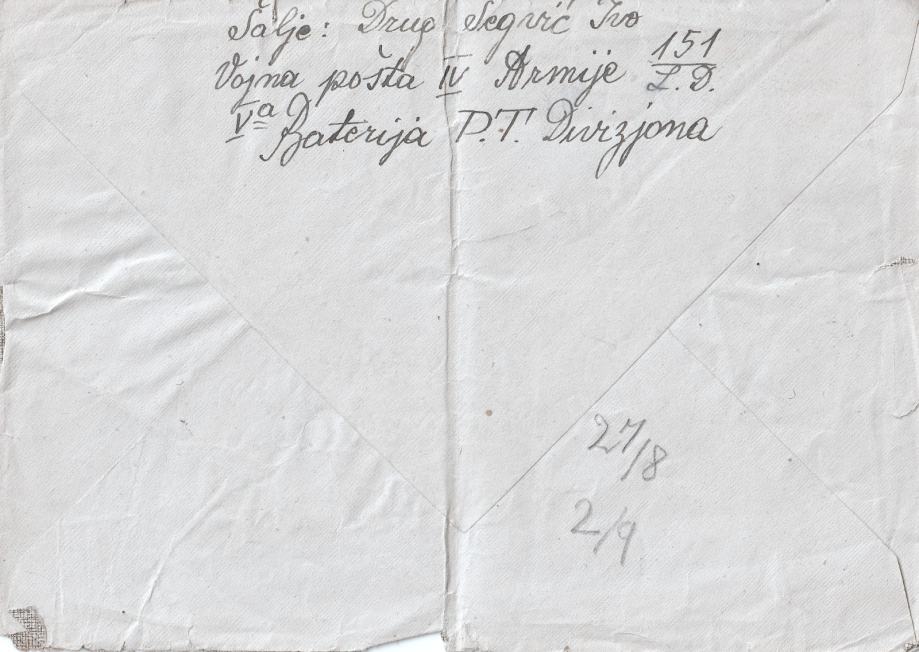 Šalje: Drug Segvić Ivo
Vojna pošta IV Armije 151
Z. D.
Va Baterija P.T. Divizjona
27/8
2/9